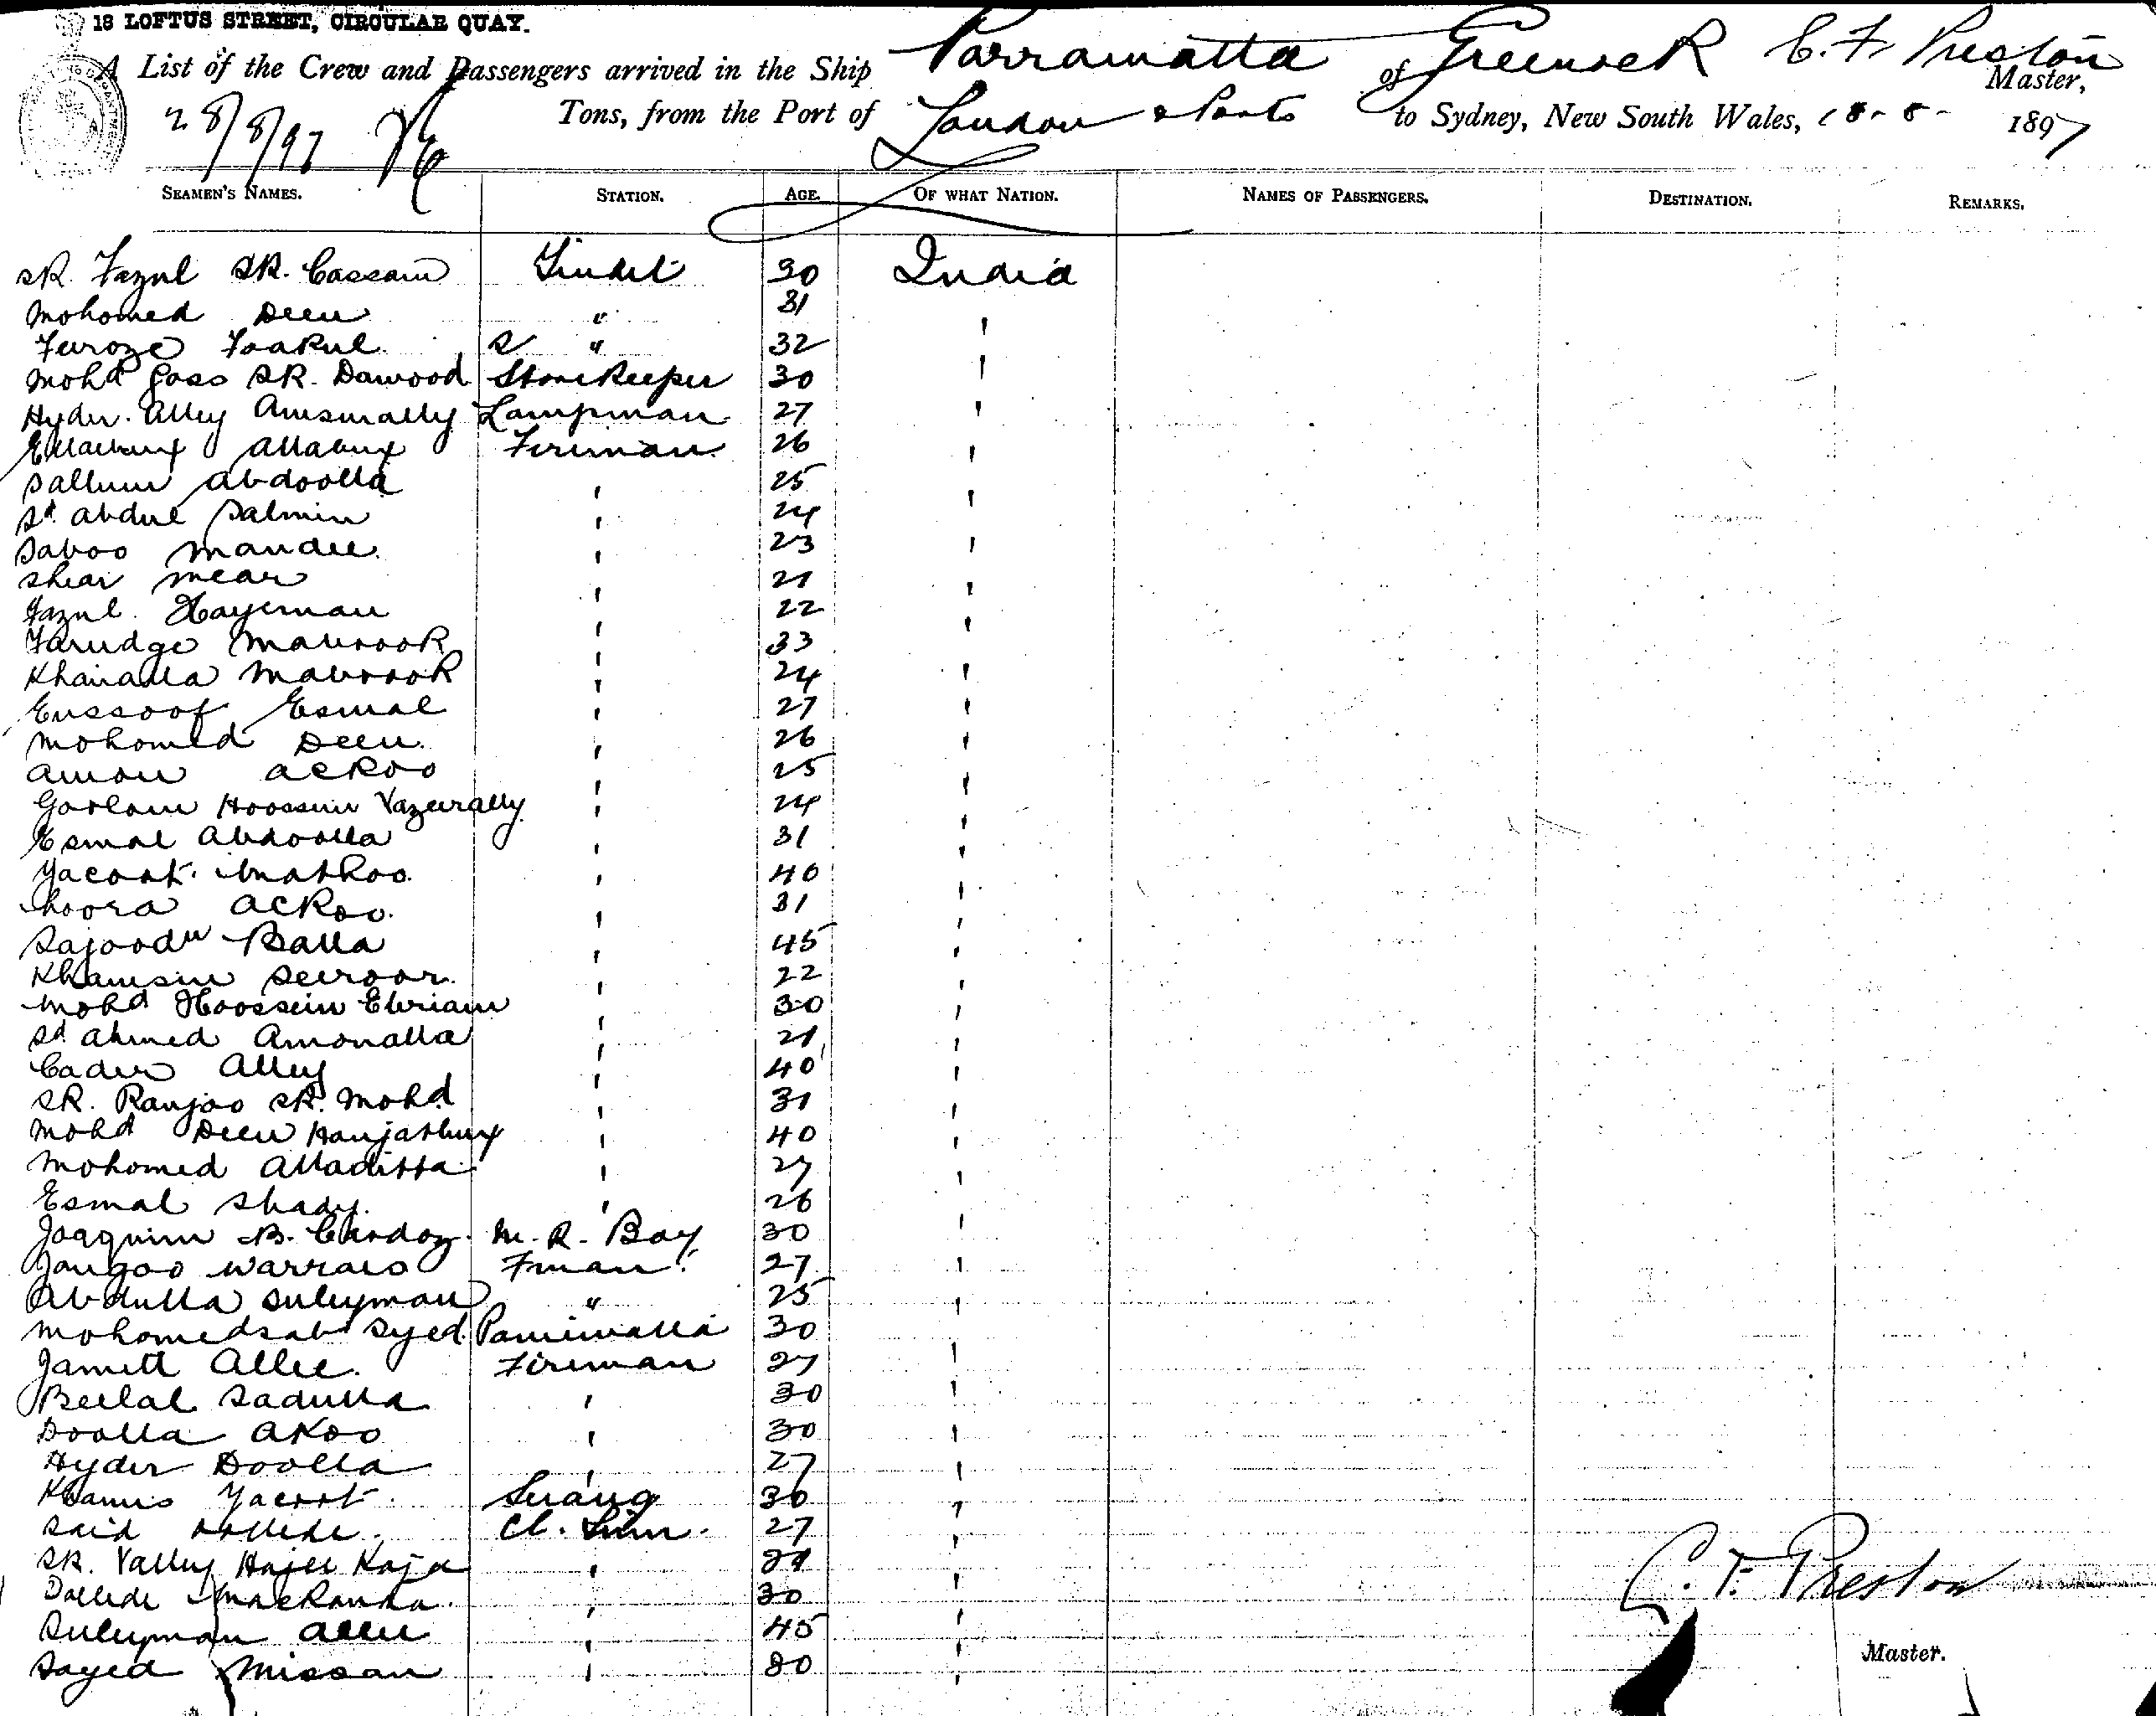 18 LOFTUS STREET, CIRCULAR QUAY.
A List of the Crew and Passengers arrived in the Ship Parramatta of Greenock C. F. Preston Master,
28/8/97 Tons, from the Port of London & Ports to Sydney, New South Wales, 18-8- 1897
SEAMEN'S NAMES. STATION. AGE. OF WHAT NATION. NAMES OF PASSENGERS. DESTINATION. REMARKS.
SK. Fazul SK. Cassam Tindel 30 India
Mohomed Deen " 31 '
Feroze Toakul S " 32 '
Mohd Goss SK. Dawood Storekeeper 30 '
Hyder Alley Amsurally Lampman 27 '
Ellahbux Allabux Fireman 26 '
Sallum Abdoolla ' 25 '
Sd. Abdul Salmin ' 24 '
Saboo Mandee ' 23 '
Shear Mear ' 21 '
Fazul Hayeman ' 22 '
Farudge Mabrook ' 33 '
Khairalla Mabrook ' 24 '
Eussoof Esmal ' 27 '
Mohomed Deen ' 26 '
Amon Ackoo ' 25 '
Goolam Hoossein Vazeerally ' 24 '
Esmal Abdoolla ' 31 '
Yacoot Matkoo ' 40 '
Noora Ackoo. ' 31 '
Sajoodn Balla ' 45 '
Khamsin Seeroor. ' 22 '
Mohd Hoossein Ebriam ' 30 '
Sd Ahmed Amonalla ' 21 '
Cader Alley ' 40 '
SK. Ranjoo SK. Mohd ' 31 '
Mohd Deen Hanjatbux ' 40 '
Mohomed Alladitta ' 27 '
Esmal Shady. ' 26 '
Joaquim B. Cardoz. M. R. Boy 30 '
Gangoo Warraio Fman. 27 '
Abdulla Suleyman " 25 '
Mohomedsab Syed Panniwalla 30 '
Jamett Allee. Fireman 27 '
Beelal Sadulla ' 30 '
Doolla Akoo ' 30 '
Hyder Doolla ' 27 '
Khamis Yacoot. Serang 30 '
Said Cl. 27 '
SK. Valley Hajee Kaja ' '
Dollede Mackanda. ' 30 '
Suleyman Allee ' 45 '
Sayed Missan ' 30 '
C. F. Preston
Master.